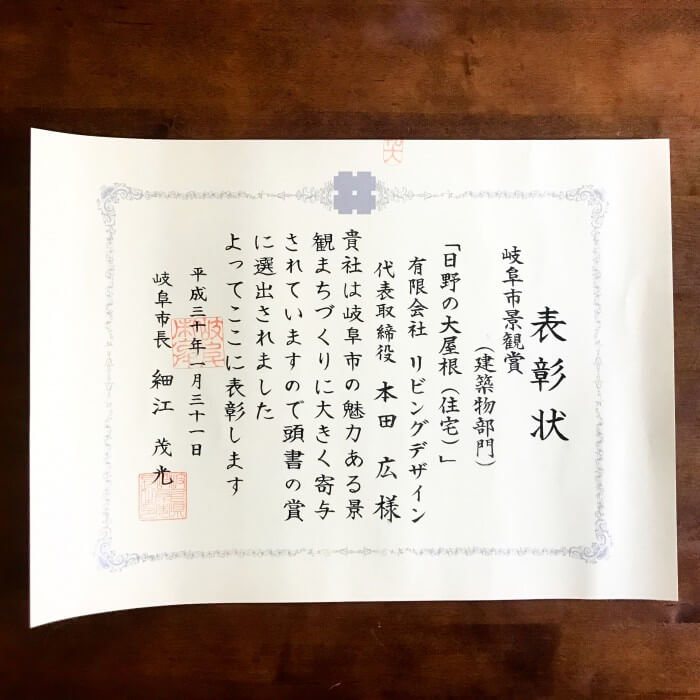 表彰状
岐阜市景観賞
(建築物部門)
「日野の大屋根(住宅)」
有限会社 リビングデザイン
代表取締役 本田 広 様
貴社は岐阜市の魅力ある景
観まちづくりに大きく寄与
されていますので頭書の賞
に選出されました
よってここに表彰します
平成三十年一月三十一日
岐阜市長 細江 茂光